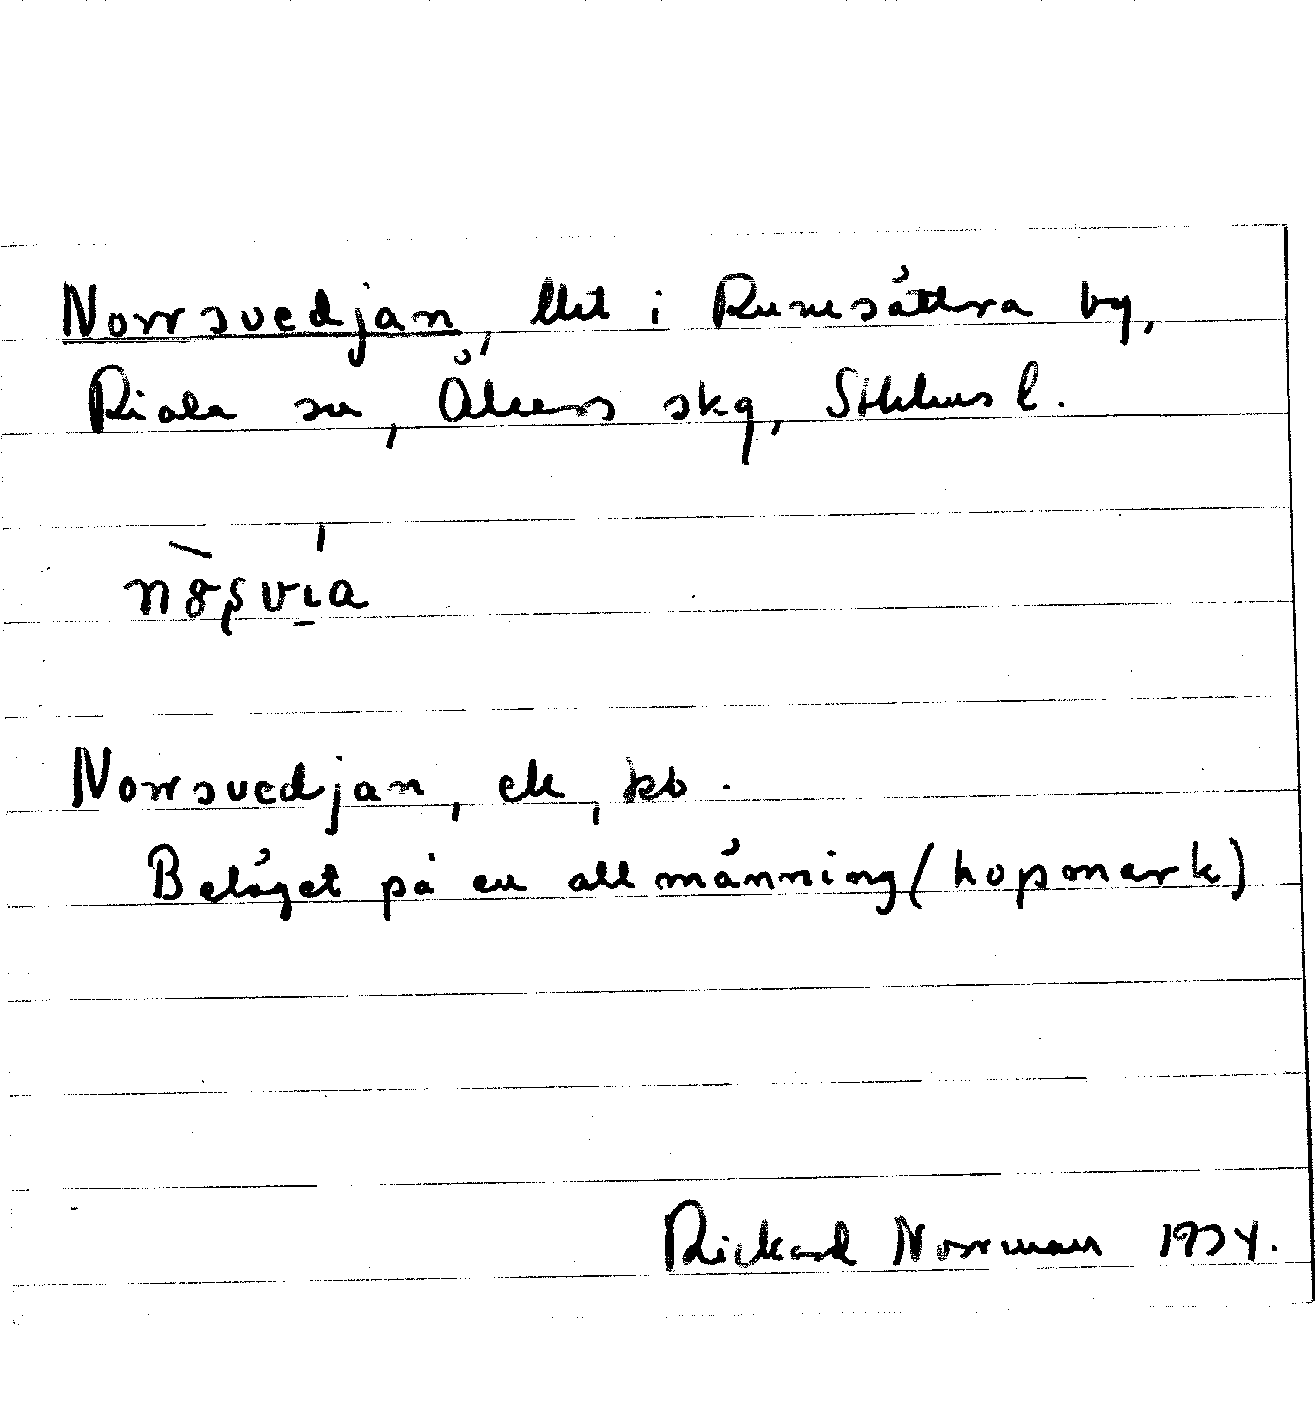 Norrsvedjan, lht i Runesättra by,
Riala sn, Åkers skg, Sthlms l.
Norrsvedjan, ek, kb.
Beläget på en allmänning (hopmark)
Rickard Norrman 1934.